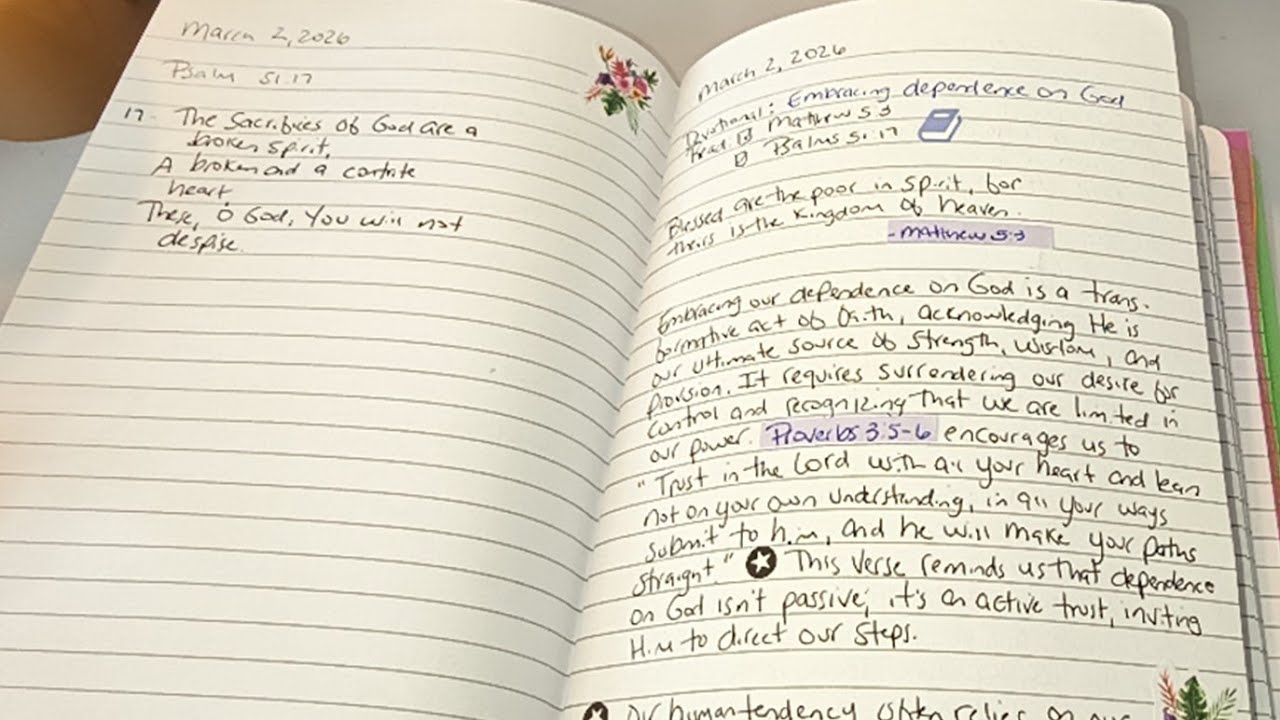 March 2, 2026
Psalm 51:17
17. The Sacrifices of God are a
broken spirit,
A broken and a contrite
heart
These, O God, You will not
despise.
March 2, 2026
Devotional: Embracing dependence on God
Read Matthew 5:3
Psalms 51:17
Blessed are the poor in spirit, for
theirs is the Kingdom of heaven.
- Matthew 5:3
Embracing our dependence on God is a trans-
formative act of faith, acknowledging He is
our ultimate source of strength, wisdom, and
provision. It requires surrendering our desire for
control and recognizing that we are limited in
our power. Proverbs 3:5-6 encourages us to
"Trust in the Lord with all your heart and lean
not on your own understanding, in all your ways
submit to him, and he will make your paths
straight." This verse reminds us that dependence
on God isn't passive; it's an active trust, inviting
Him to direct our steps.
Our human tendency often relies on our